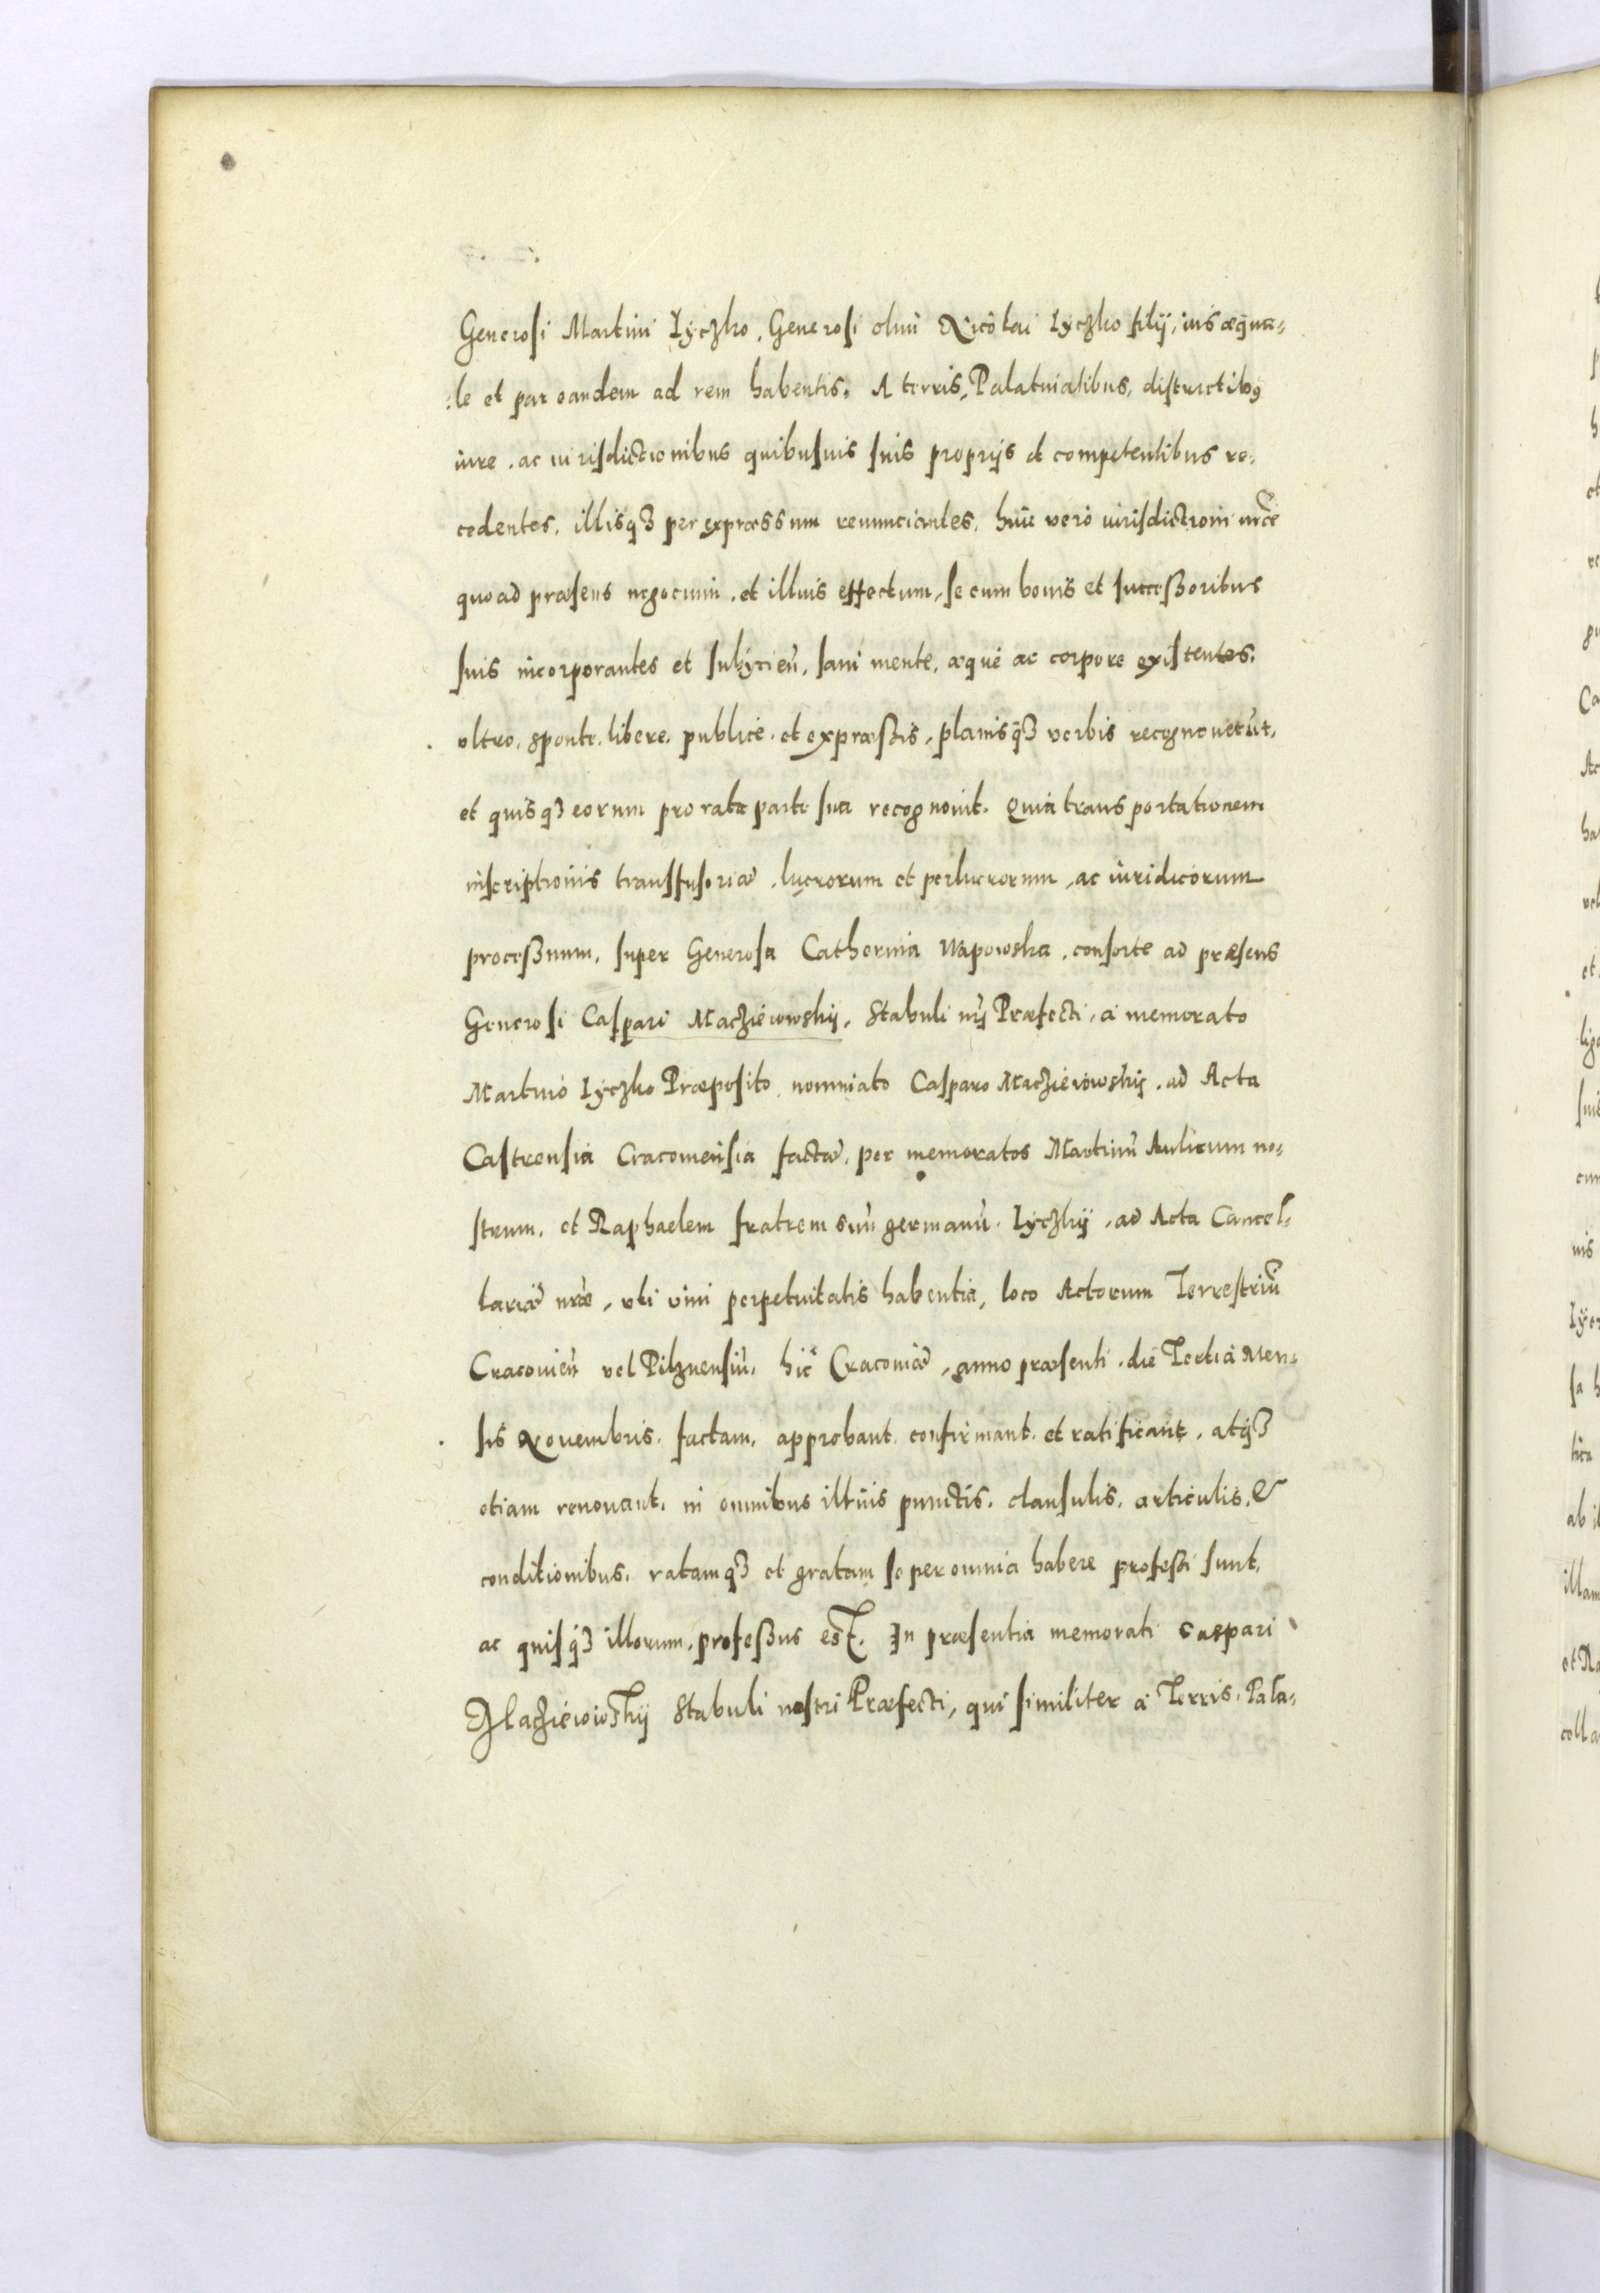 Generosi Martini Lyczko, Generosi olim Nicolai Lyczko filij, ius æqua-
le et par eandem ad rem habentis, A terris, Palatinatibus, districtibus
iure, ac iurisdictionibus quibusuis suis proprijs et competentibus re-
cedentes, illisq3 per expræssum renunciantes, huic verò iurisdictioni nræ
quoad præsens negocium, et illius effectum, se cum bonis et successoribus
suis incorporantes et subijcien̄, sani mente, æquè ac corpore existentes,
vltro, sponte, libere, publicè, et expræssis, planisq3 verbis recognouerūt,
et quisq3 eorum pro rata parte sua recognouit. Quia transportationem
inscriptionis transfusoriæ, lucrorum et perlucrorum, ac iuridicorum
processuum, super Generosa Catherina Wapowska, consorte ad præsens
Generosi Caspari Macziéiowskij, Stabuli nri Præfecti, à memorato
Martino Lyczko Præposito, nominato Casparo Macziéiowskij, ad Acta
Castrensia Cracouiensia factæ, per memoratos Martinū Aulicum no-
strum, et Raphaelem fratrem suū germanū Lyczkij, ad Acta Cancel-
lariæ nræ, vti vim perpetuitatis habentia, loco Actorum Terrestriū
Cracouien̄ vel Pilznensiū, hic Cracouiæ, anno præsenti, die Tertia Men-
sis Nouembris, factam, approbant, confirmant, et ratificant, atq3
etiam renouant, in omnibus illius punctis, clausulis, articulis, &
conditionibus, ratamq3 et gratam se per omnia habere professi sunt,
ac quisq3 illorum, professus est. In præsentia memorati Caspari
Macziéiowskij Stabuli nostri Præfecti, qui similiter à Terris, Pala-